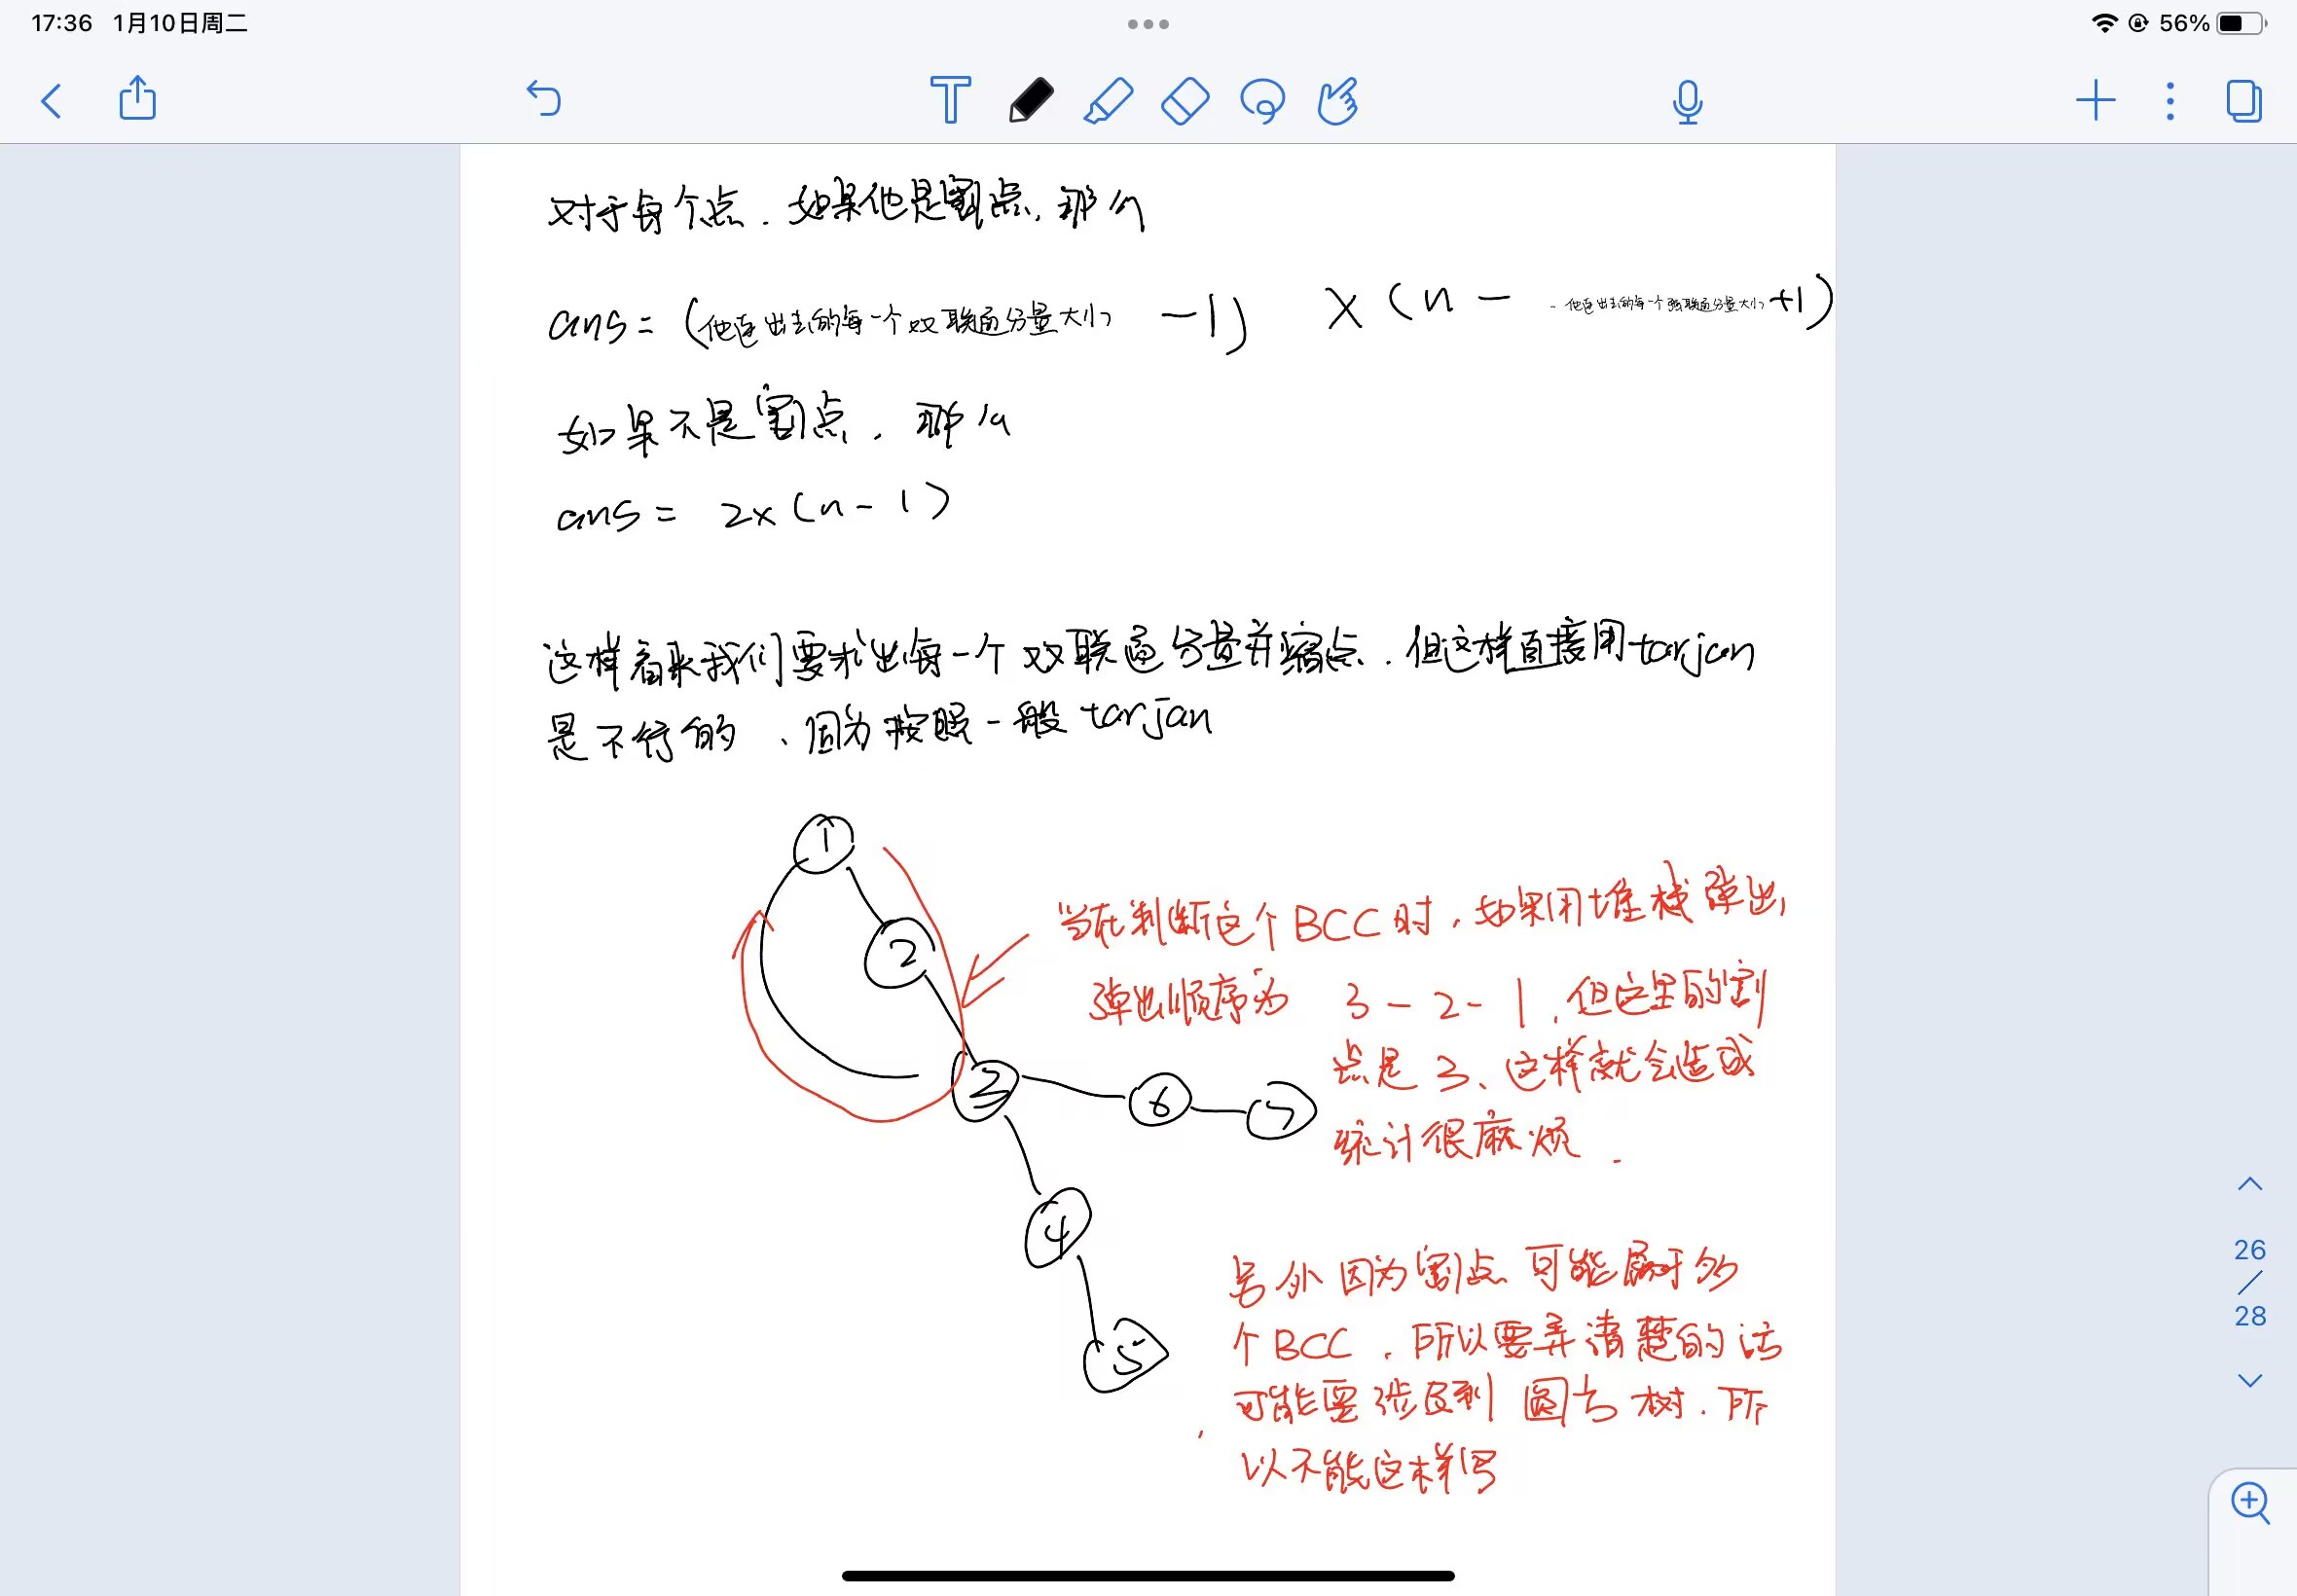 17:36 1月10日周二
56%
对于每个点.如果他是割点,那么
ans = (他连出去的每一个双联通分量大小 -1) × (n - - 他连出去的每一个强联通分量大小 +1)
如果不是割点,那么
ans = 2×(n-1)
这样看来我们要求出每一个双联通分量并缩点.但这样直接用tarjan
是不行的、因为按照一般tarjan
1
2
3
6
7
4
5
当在判断这个BCC时,如果用堆栈弹出,
弹出顺序为 3-2-1,但这里的割
点是3、这样就会造成
统计很麻烦.
另外因为割点可能属于多
个BCC,所以要弄清楚的话
可能要涉及到圆方树.所
以不能这样写
26
/
28